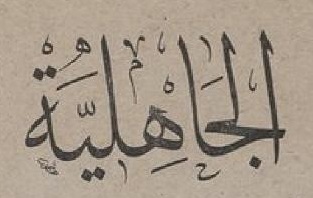 الجَاهِليَّة